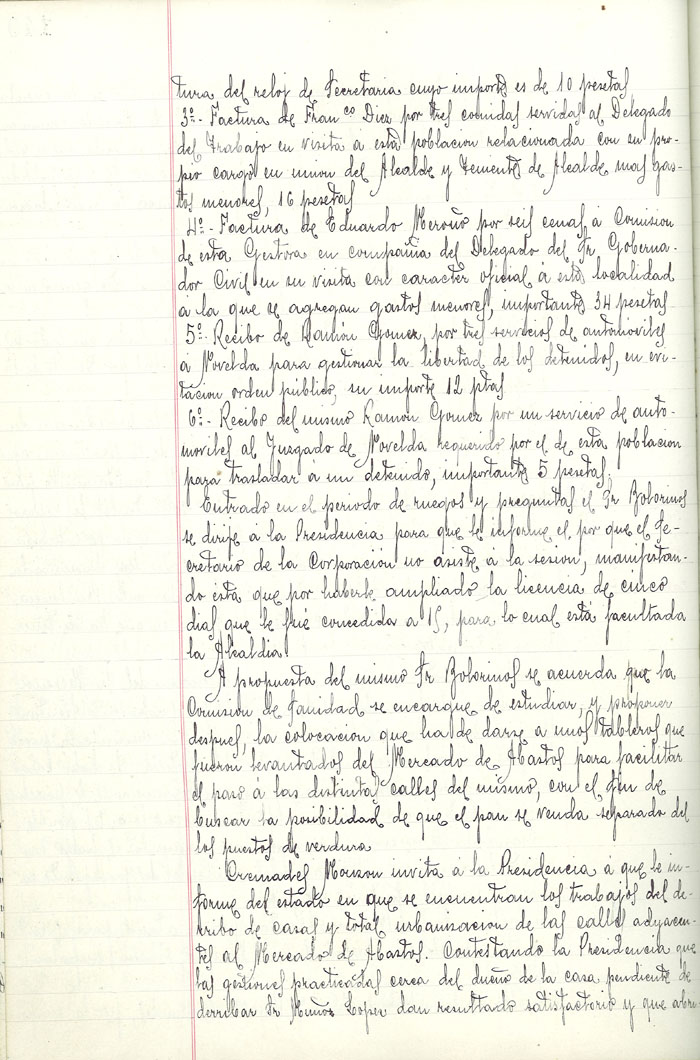 tura del reloj de Secretaria cuyo importe es de 10 pesetas
3º.- Factura de Franco Diez por tres comidas servidas al Delegado
del Trabajo en visita á esta poblacion relacionada con su pro-
pio cargo en union del Alcalde y Teniente de Alcalde mas gas-
tos menores, 16 pesetas
4º.- Factura de Eduardo Meroño por seis cenas á Comision
de esta Gestora en compañia del Delegado del Sr Goberna-
dor Civil en su visita con caracter oficial á esta localidad
á la que se agregan gastos menores, importante 34 pesetas
5º.- Recibo de Ramón Gomez, por tres servicios de automoviles
á Novelda para gestionar la libertad de los detenidos, en evi-
tacion orden publico, su importe 12 ptas
6º.- Recibo del mismo Ramon Gomez por un servicio de auto-
moviles al Juzgado de Novelda requerido por el de esta poblacion
para trasladar á un detenido, importante 5 pesetas,
Entrado en el periodo de ruegos y preguntas el Sr Bolorinos
se dirije á la Presidencia para que le informe el por que el Se-
cretario de la Corporación no asiste á la sesion, manifestan-
do esta que por haberle ampliado la licencia de cinco
dias que le fué concedida a 15, para lo cual está facultada
la Alcaldia
A propuesta del mismo Sr Bolorinos se acuerda que la
Comision de Sanidad se encargue de estudiar, y proponer
despues, la colocacion que ha de darse a unos tableros que
fueron levantados del Mercado de Abastos para facilitar
el paso á las distintas calles del mismo, con el fin de
buscar la posibilidad de que el pan se venda separado del
los puestos de verdura
Cremades Monzon invita á la Presidencia á que le in-
forme del estado en que se encuentran los trabajos del de-
rribo de casas y total urbanizacion de las calles adyacen-
tes al Mercado de Abastos. Contestando la Presidencia que
las gestiones practicadas cerca del dueño de la casa pendiente de
derribar Sr Muñoz Lopez dan resultado satisfactorio y que abri-